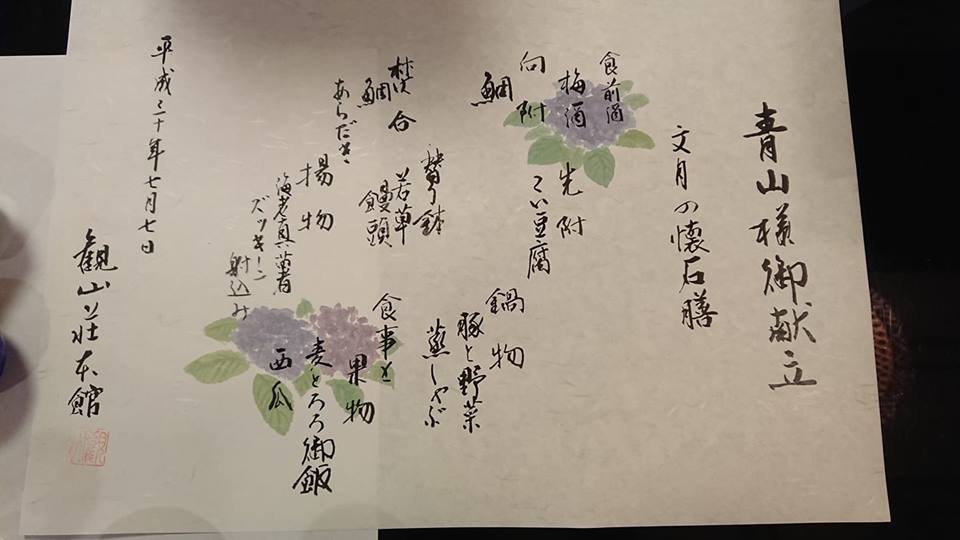 青山様御献立
文月の懐石膳
食前酒
梅酒
先附
こい豆腐
向附
鯛
鍋物
豚と野菜
蒸しゃぶ
替り鉢
若草
饅頭
焚合
鯛
あらだき
揚物
海老真薯
ズッキーニ
射込み
食事と
麦とろろ御飯
果物
西瓜
平成三十年七月七日
観山荘本館